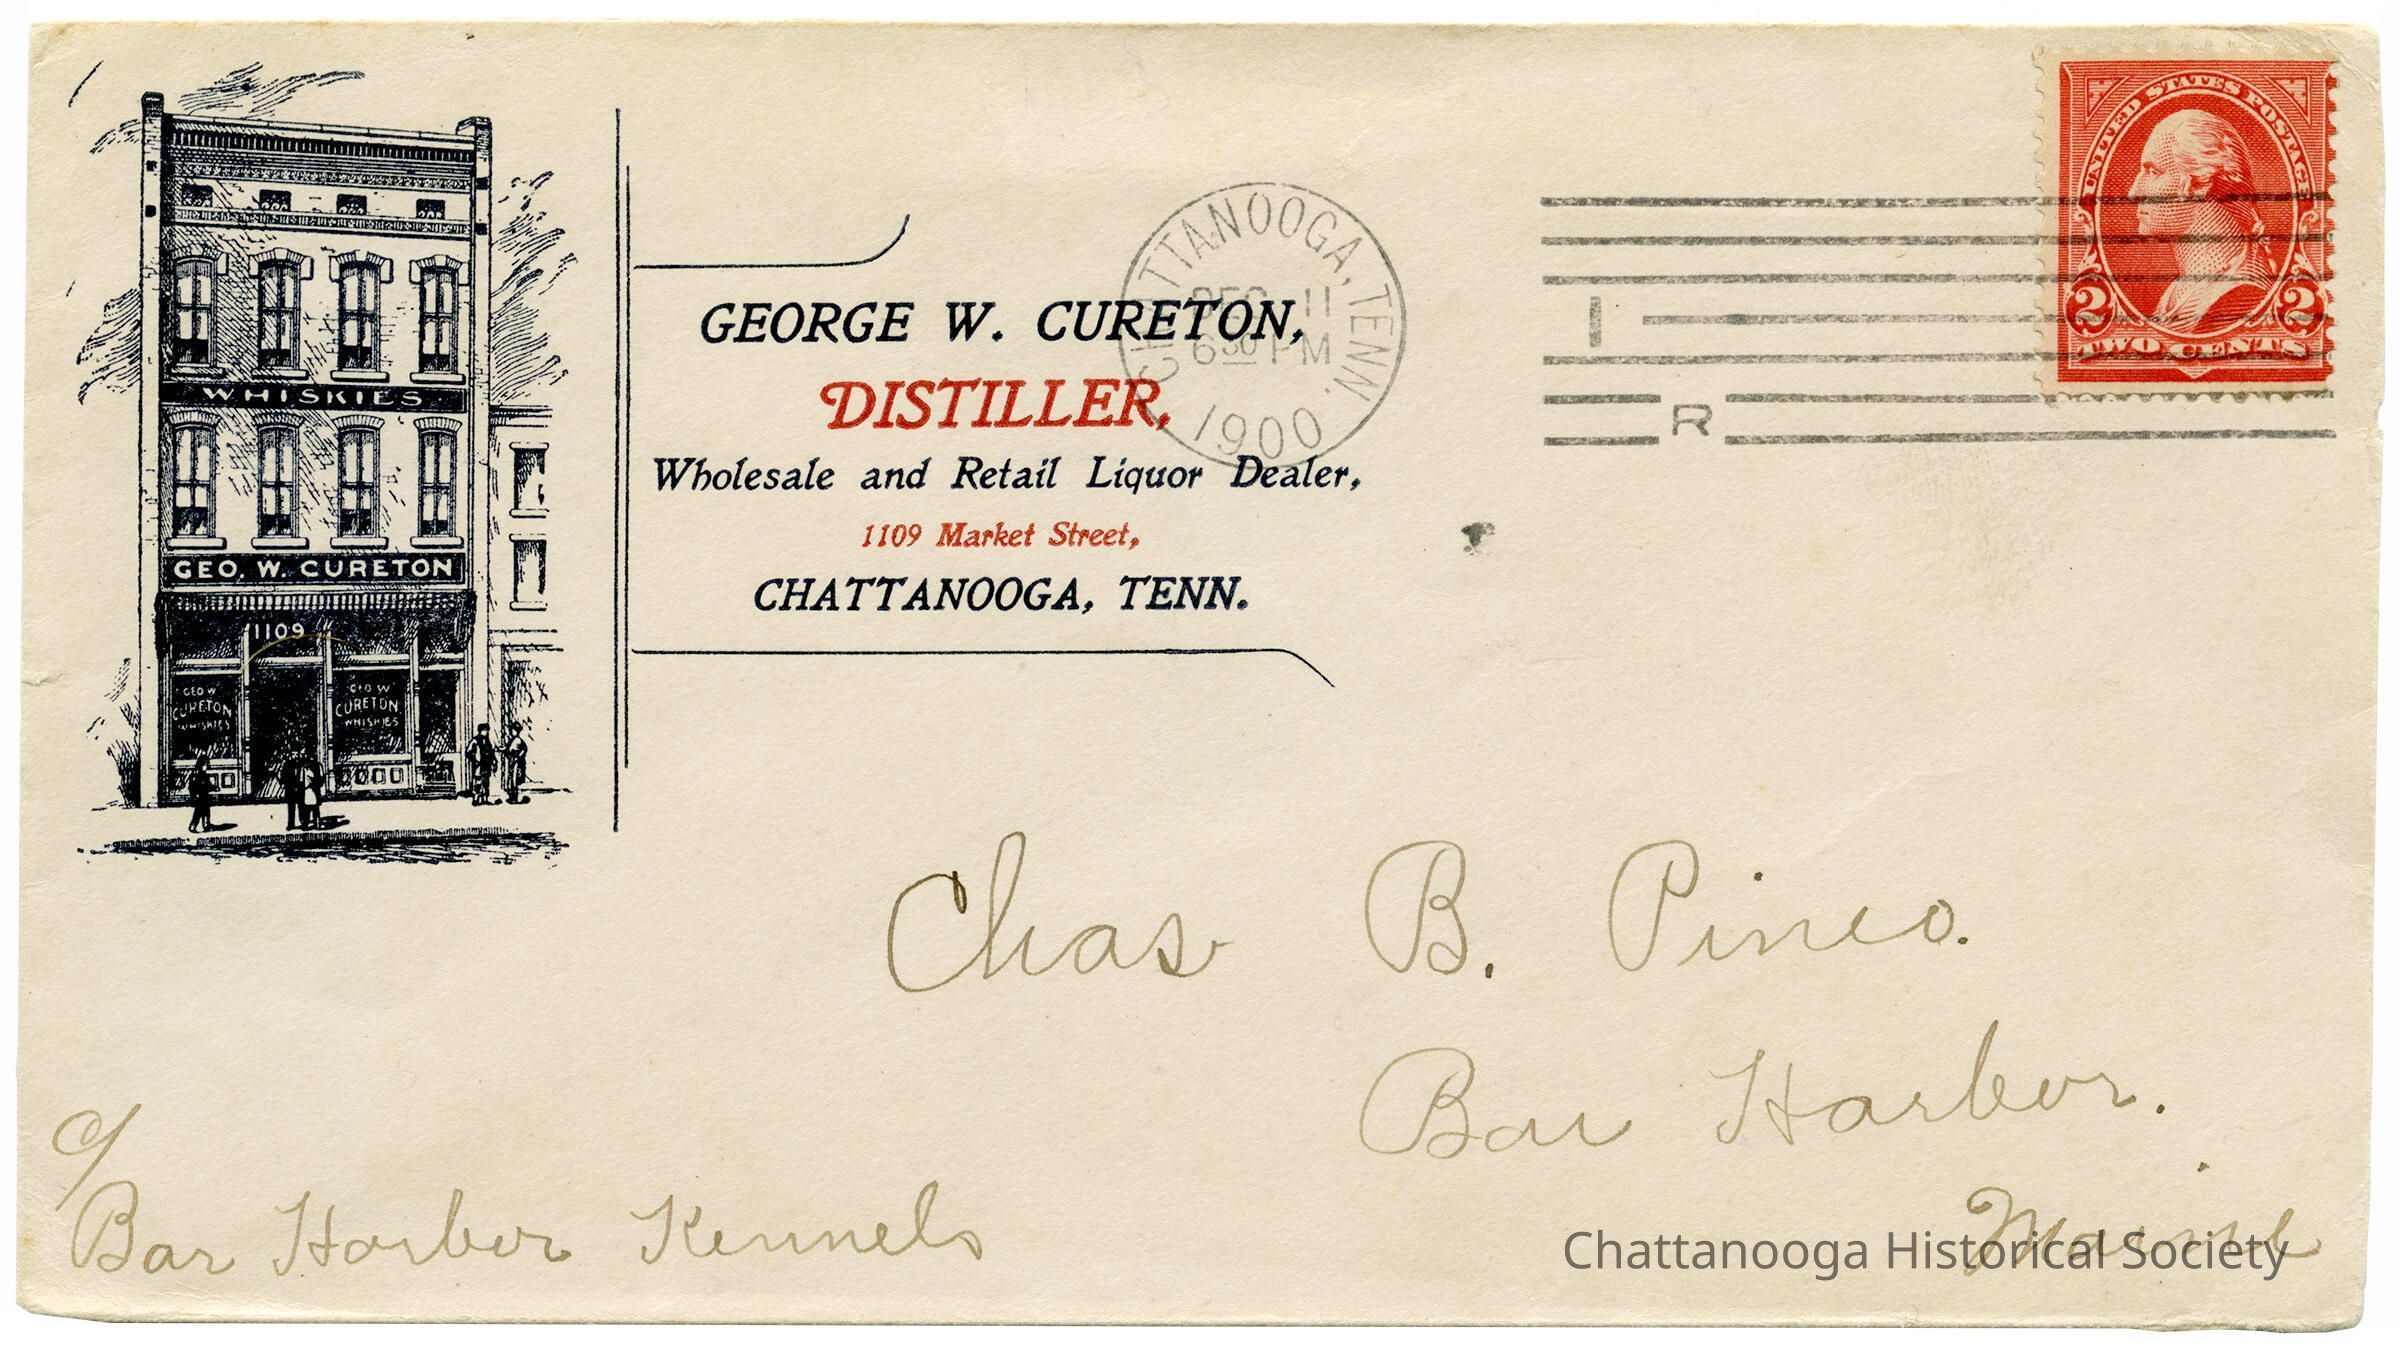 WHISKIES
GEO. W. CURETON
1109
GEO W
CURETON
WHISKIES
GEO W
CURETON
WHISKIES
GEORGE W. CURETON,
DISTILLER,
Wholesale and Retail Liquor Dealer,
1109 Market Street,
CHATTANOOGA, TENN.
CHATTANOOGA, TENN.
DEC 11
6 30 PM
1900
1
R
UNITED STATES POSTAGE
2 2
TWO CENTS
Chas B. Pineo.
Bar Harbor.
Maine
c/
Bar Harbor Kennels
Chattanooga Historical Society